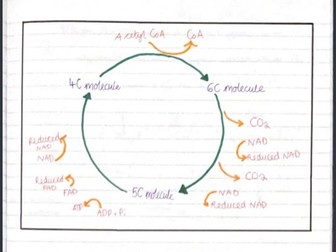 Acetyl CoA CoA
4C molecule
6C molecule
CO2
NAD
Reduced NAD
CO2
NAD
Reduced NAD
5C molecule
Reduced NAD
NAD
Reduced FAD
FAD
ATP
ADP + Pi